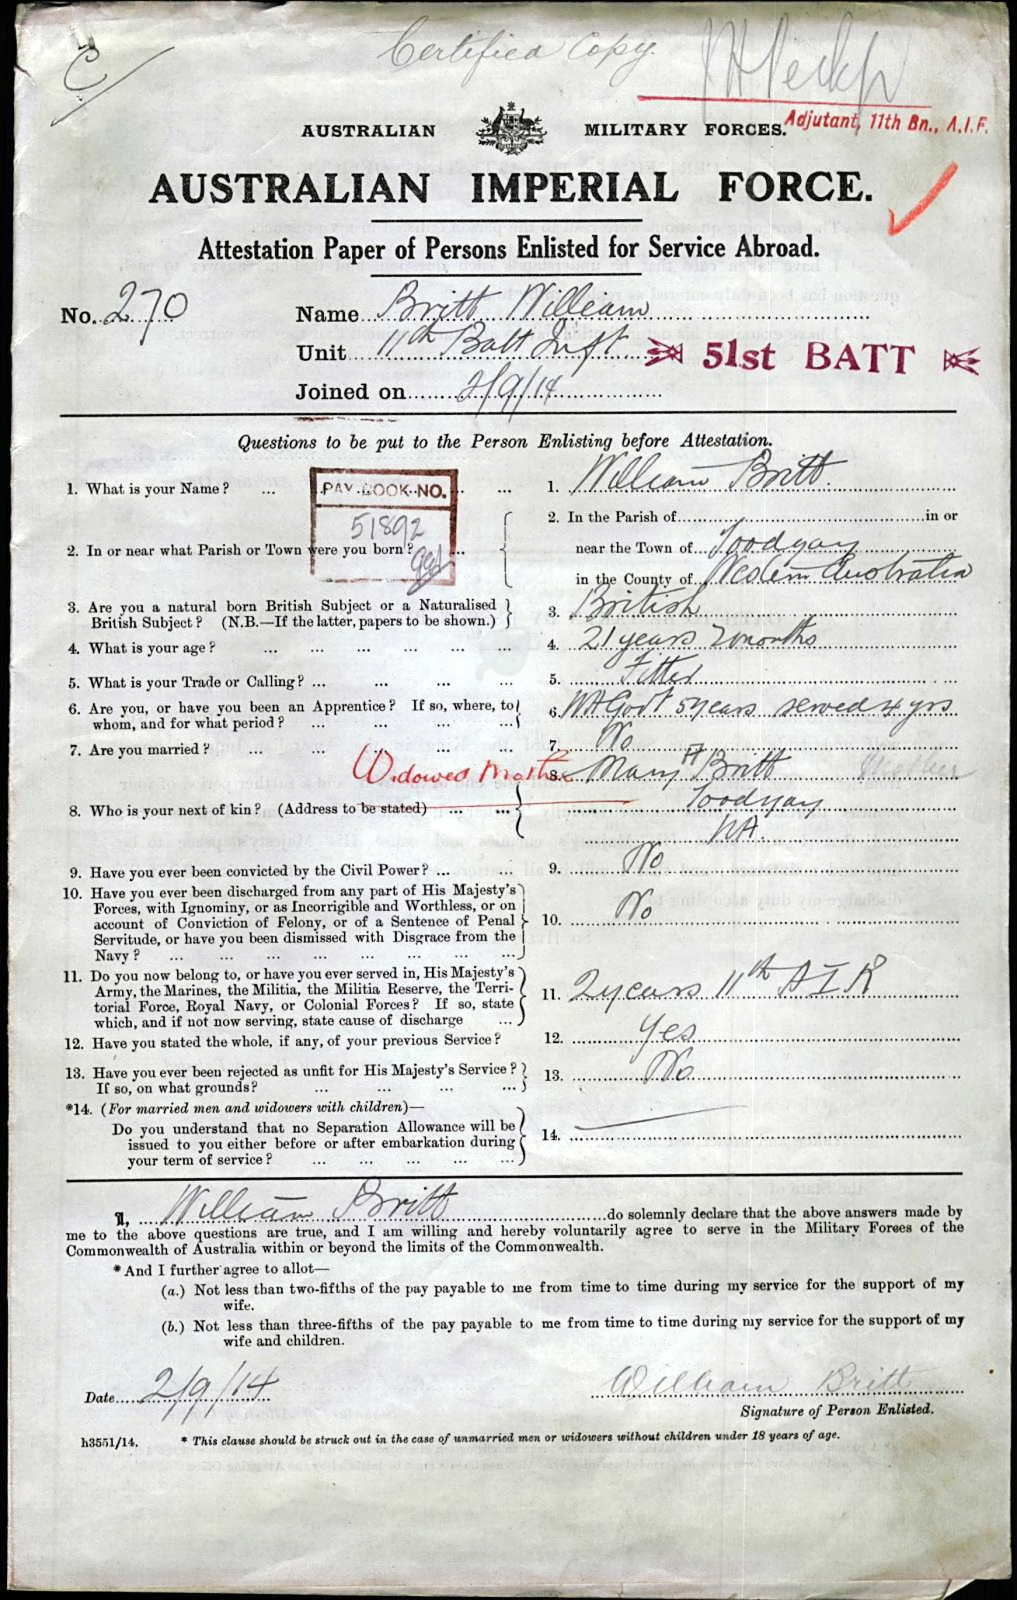 C
Certified Copy.
J H Peck
Adjutant, 11th Bn., A.I.F.
AUSTRALIAN MILITARY FORCES.
AUSTRALIAN IMPERIAL FORCE.
Attestation Paper of Persons Enlisted for Service Abroad.
No. 270 Name Britt William
Unit 11th Batt Inft 51st BATT
Joined on 2/9/14
Questions to be put to the Person Enlisting before Attestation.
1. What is your Name? ... ... 1. William Britt.
PAY BOOK NO.
51892
2. In the Parish of in or
2. In or near what Parish or Town were you born? ... near the Town of Toodyay
in the County of Western Australia
3. Are you a natural born British Subject or a Naturalised
British Subject? (N.B.—If the latter, papers to be shown.) 3. British
4. What is your age? ... ... ... ... ... ... 4. 21 years 7 months
5. What is your Trade or Calling? ... ... ... ... 5. Fitter
6. Are you, or have you been an Apprentice? If so, where, to
whom, and for what period? ... ... ... ... 6. WA Govt 5 years served 4 yrs
7. Are you married? ... ... ... ... ... 7. No
Widowed Mother 8. Mary H Britt Mother
8. Who is your next of kin? (Address to be stated) ... ... Toodyay
WA.
9. Have you ever been convicted by the Civil Power? ... ... 9. No
10. Have you ever been discharged from any part of His Majesty's
Forces, with Ignominy, or as Incorrigible and Worthless, or on
account of Conviction of Felony, or of a Sentence of Penal 10. No
Servitude, or have you been dismissed with Disgrace from the
Navy? ... ... ... ... ... ... ... ...
11. Do you now belong to, or have you ever served in, His Majesty's
Army, the Marines, the Militia, the Militia Reserve, the Terri-
torial Force, Royal Navy, or Colonial Forces? If so, state 11. 2 years 11th A I R
which, and if not now serving, state cause of discharge ...
12. Have you stated the whole, if any, of your previous Service? 12. Yes
13. Have you ever been rejected as unfit for His Majesty's Service?
If so, on what grounds? ... ... ... ... 13. No
*14. (For married men and widowers with children)—
Do you understand that no Separation Allowance will be
issued to you either before or after embarkation during 14.
your term of service? ... ... ... ... ...
I, William Britt do solemnly declare that the above answers made by
me to the above questions are true, and I am willing and hereby voluntarily agree to serve in the Military Forces of the
Commonwealth of Australia within or beyond the limits of the Commonwealth.
* And I further agree to allot—
(a.) Not less than two-fifths of the pay payable to me from time to time during my service for the support of my
wife.
(b.) Not less than three-fifths of the pay payable to me from time to time during my service for the support of my
wife and children.
Date 2/9/14 William Britt
Signature of Person Enlisted.
h3551/14. * This clause should be struck out in the case of unmarried men or widowers without children under 18 years of age.